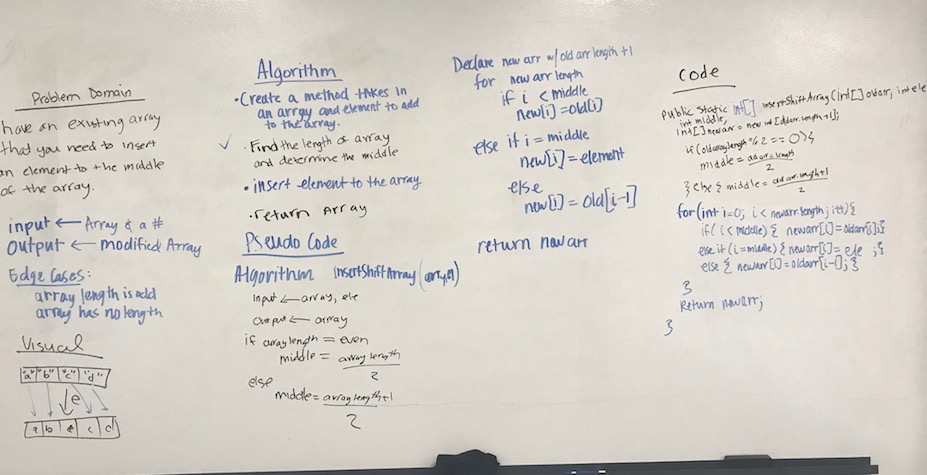 Problem Domain
have an existing array
that you need to insert
an element to the middle
of the array.
input ← Array & a #
Output ← modified Array
Edge Cases:
array length is odd
array has no length
Visual
"a" "b" "c" "d"
e
a b e c d
Algorithm
• Create a method takes in
an array and element to add
to the array.
✓ • Find the length of array
and determine the middle
• insert element to the array
• return Array
Pseudo Code
Algorithm insertShiftArray (array, el)
Input ← array, ele
Output ← array
if array length = even
middle = array length
2
else
middle = array length+1
2
Declare new arr w/ old arr length +1
for new arr length
if i < middle
new[i] = old[i]
else if i = middle
new[i] = element
else
new[i] = old[i-1]
return new arr
Code
Public Static int[] insertShiftArray (int[] oldarr, int ele
int middle;
int[] newarr = new int[oldarr.length+1];
if (oldarray.length % 2 == 0) {
middle = oldarr.length
2
} else { middle = oldarr.length+1
2
for (int i=0; i < newarr.length; i++) {
if (i < middle) { newarr[i] = oldarr[i];}
else if (i = middle) { newarr[i] = ele ;}
else { newarr[i] = oldarr[i-1]; }
}
Return newarr;
}